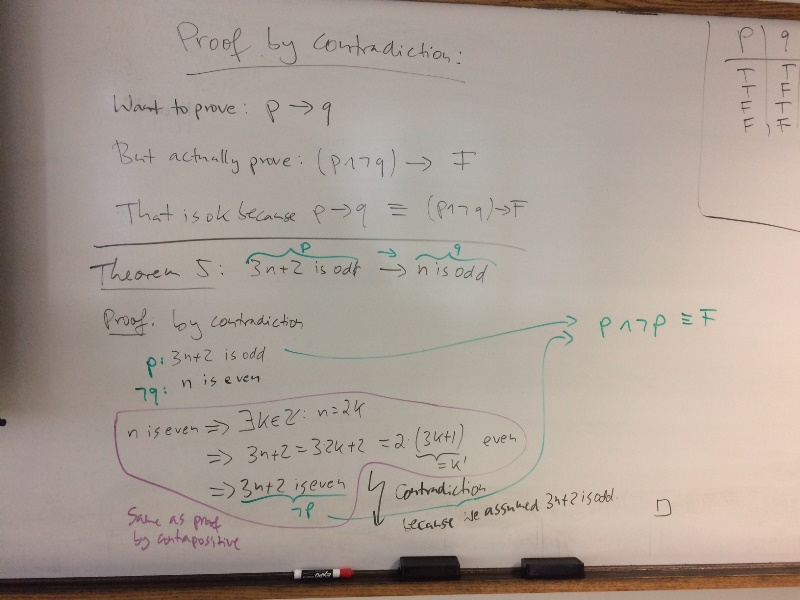 Proof by contradiction:
Want to prove: p → q
But actually prove: (p∧¬q) → F
That is ok because p → q ≡ (p∧¬q)→F
p → q
Theorem 5: 3n+2 is odd → n is odd
Proof: by contradiction
p: 3n+2 is odd
¬q: n is even
n is even ⇒ ∃k∈ℤ: n=2k
⇒ 3n+2 = 3·2k+2 = 2·(3k+1) even
=k'
⇒ 3n+2 is even
¬p
Contradiction
because we assumed 3n+2 is odd. □
Same as proof
by contrapositive
p∧¬p ≡ F
p | q
T T
T F
F T
F F